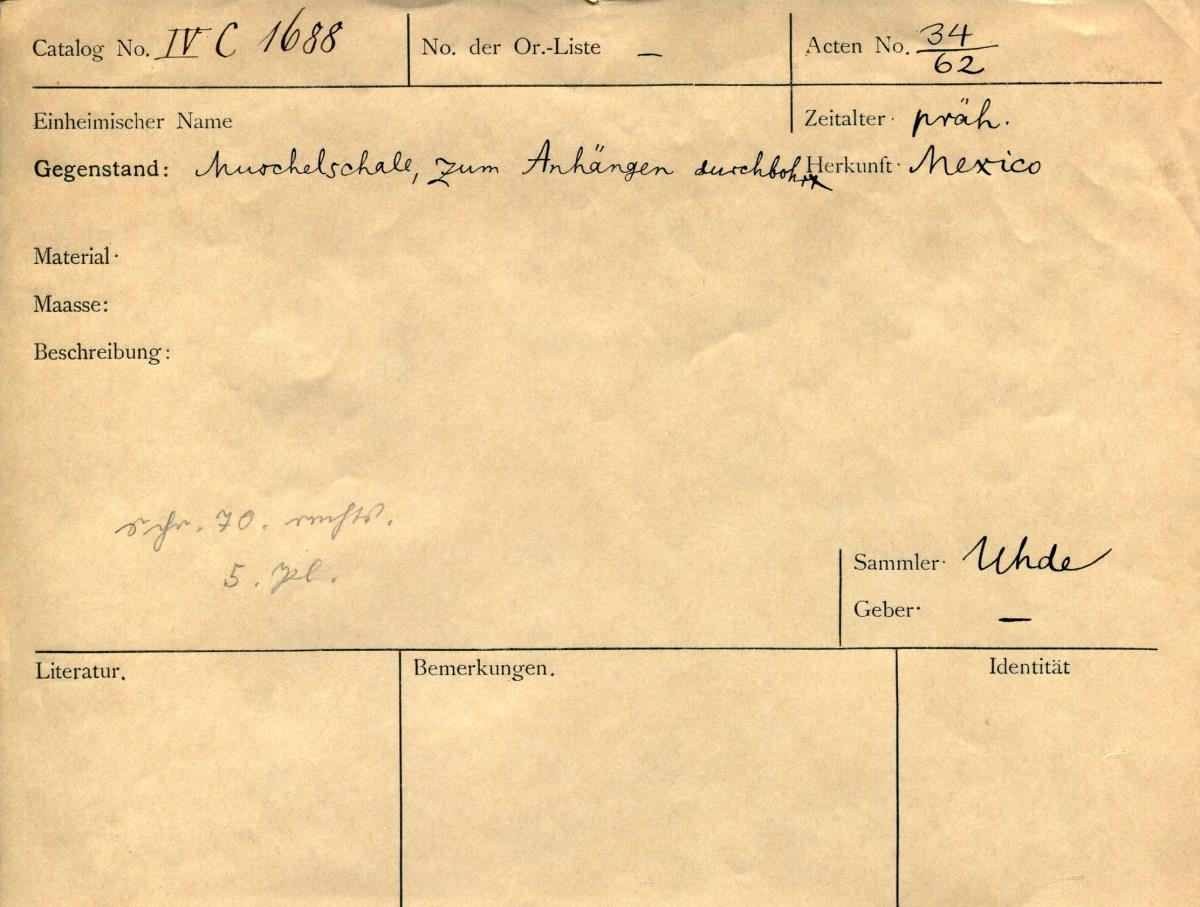 Catalog No. IV C 1688 No. der Or.-Liste — Acten No. 34/62
Einheimischer Name Zeitalter· präh.
Gegenstand: Muschelschale, zum Anhängen durchbohrt Herkunft· Mexico
Material·
Maasse:
Beschreibung:
schr. 70. rechts.
5. pl.
Sammler· Uhde
Geber· —
Literatur. Bemerkungen. Identität